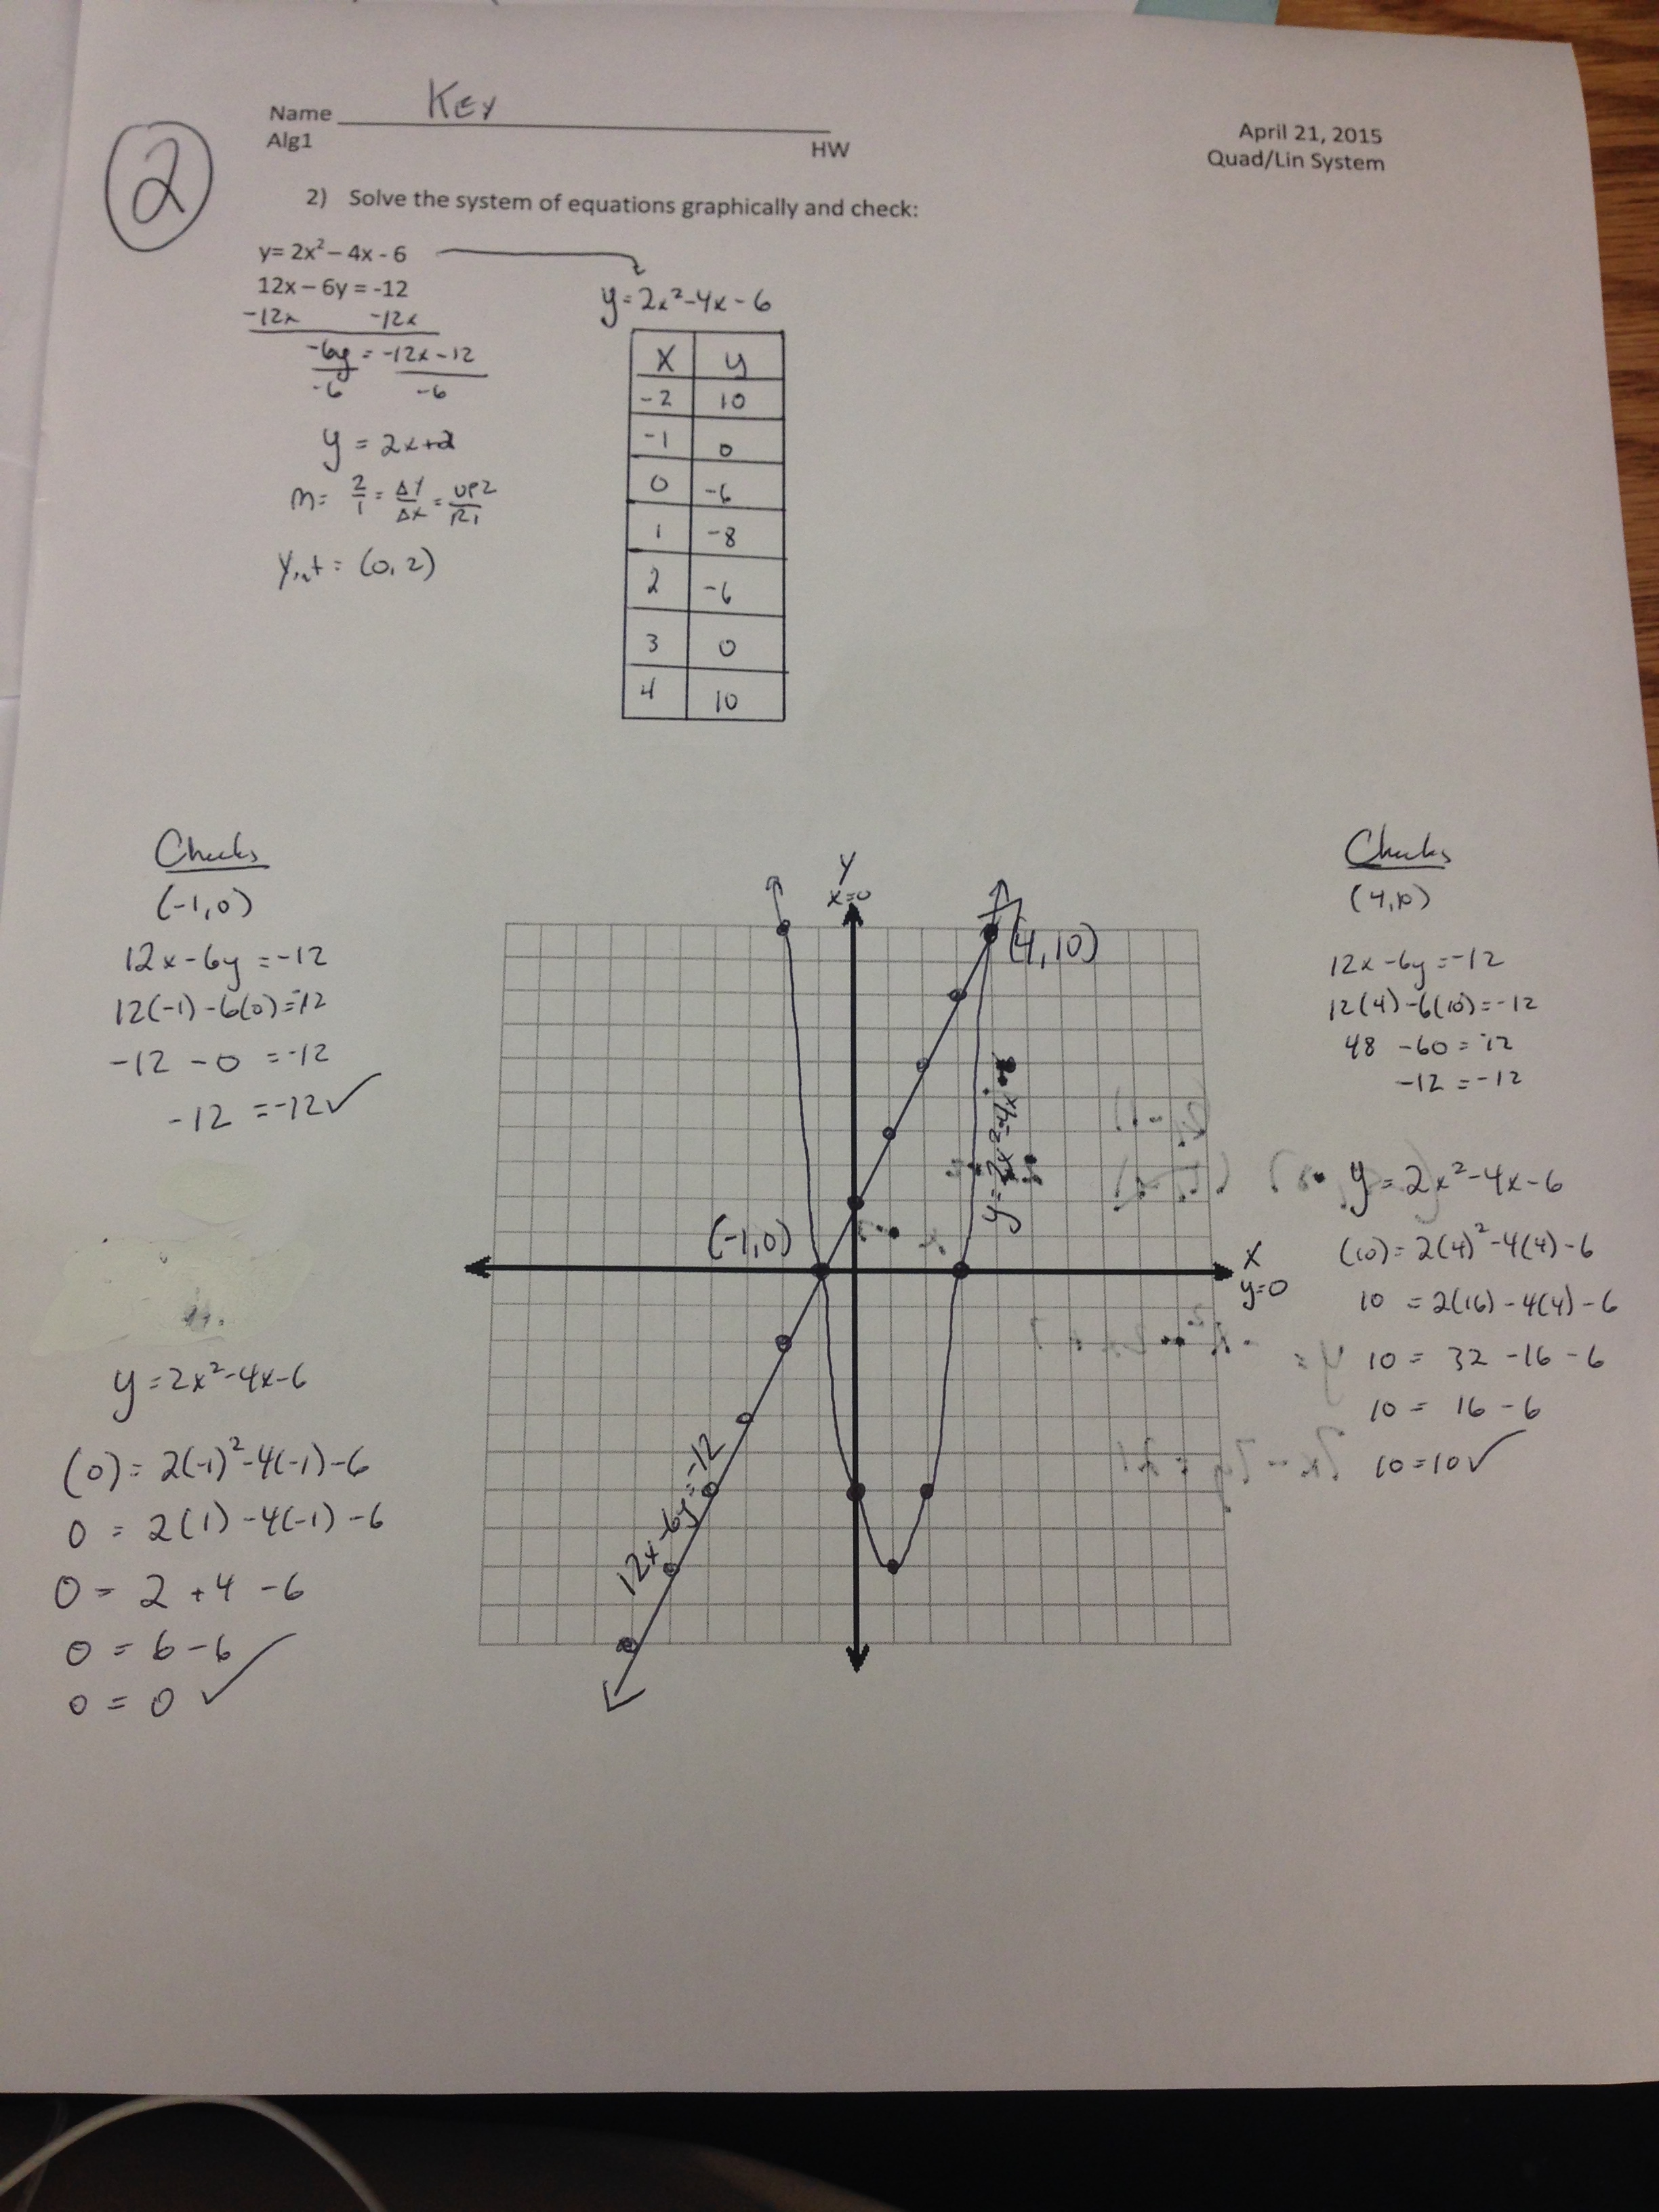 2
Name KEY
Alg1
HW
April 21, 2015
Quad/Lin System
2) Solve the system of equations graphically and check:
y= 2x² – 4x - 6
12x – 6y = -12
-12x -12x
-6y = -12x -12
-6 -6
y = 2x+2
m= 2/1 = ΔY/ΔX = UP2/R1
Yint = (0, 2)
y = 2x²-4x-6
X y
-2 10
-1 0
0 -6
1 -8
2 -6
3 0
4 10
Checks
(-1,0)
12x-6y =-12
12(-1)-6(0)=-12
-12 -0 =-12
-12 =-12✓
y =2x²-4x-6
(0)= 2(-1)²-4(-1)-6
0 = 2(1)-4(-1)-6
0 = 2 +4 -6
0 = 6-6
0 = 0 ✓
Y
x=0
(4,10)
y=2x²-4x
(-1,0)
X
y=0
12x-6y=-12
Checks
(4,10)
12x-6y=-12
12(4)-6(10)=-12
48 -60=-12
-12 =-12
y =2x²-4x-6
(10)=2(4)²-4(4)-6
10 =2(16)-4(4)-6
10 = 32 -16 -6
10 = 16 -6
10=10✓